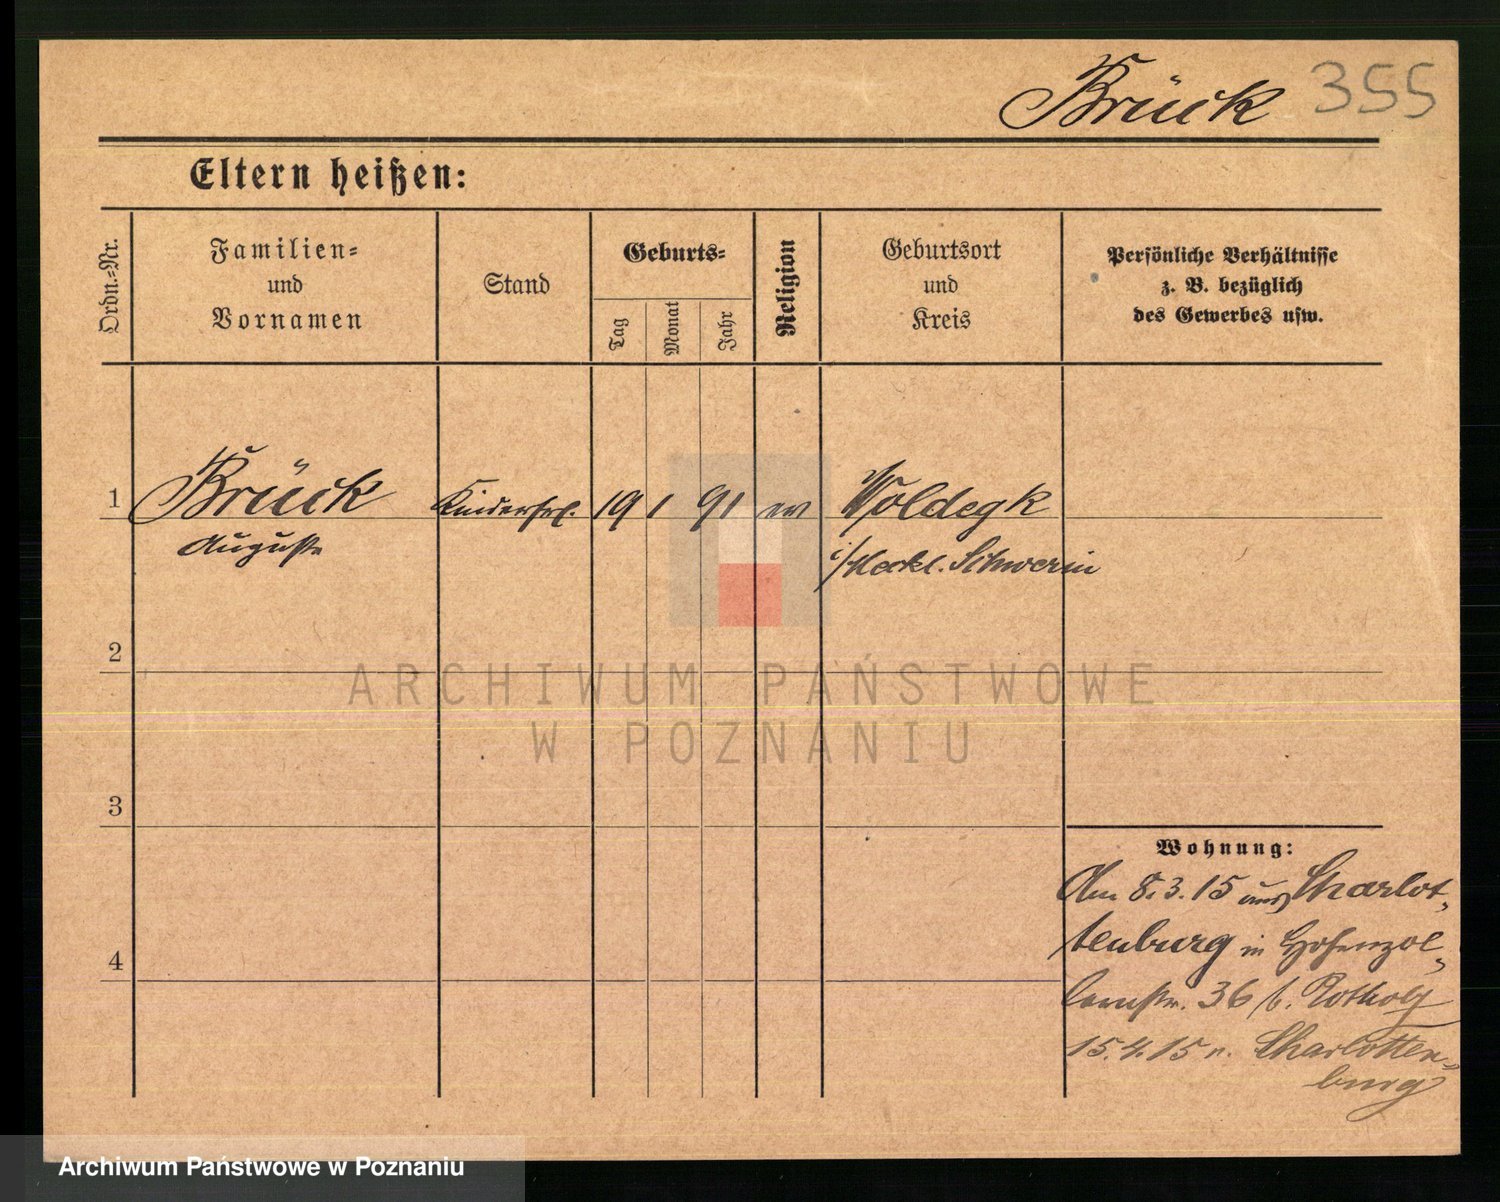 Brück 355
Eltern heißen:
Ordn.-Nr.
Familien-
und
Vornamen
Stand
Geburts-
Tag
Monat
Jahr
Religion
Geburtsort
und
Kreis
Persönliche Verhältnisse
z. B. bezüglich
des Gewerbes usw.
1 Brück Kinderfrl. 19 1 91 ev Woldegk
Auguste i/Meckl. Schwerin
2
3
4
Wohnung:
Am 8.3.15 aus Charlot-
tenburg in Hohenzol-
lernstr. 36 b. Rotholz
15.4.15 n. Charlotten-
burg
ARCHIWUM PAŃSTWOWE
W POZNANIU
Archiwum Państwowe w Poznaniu